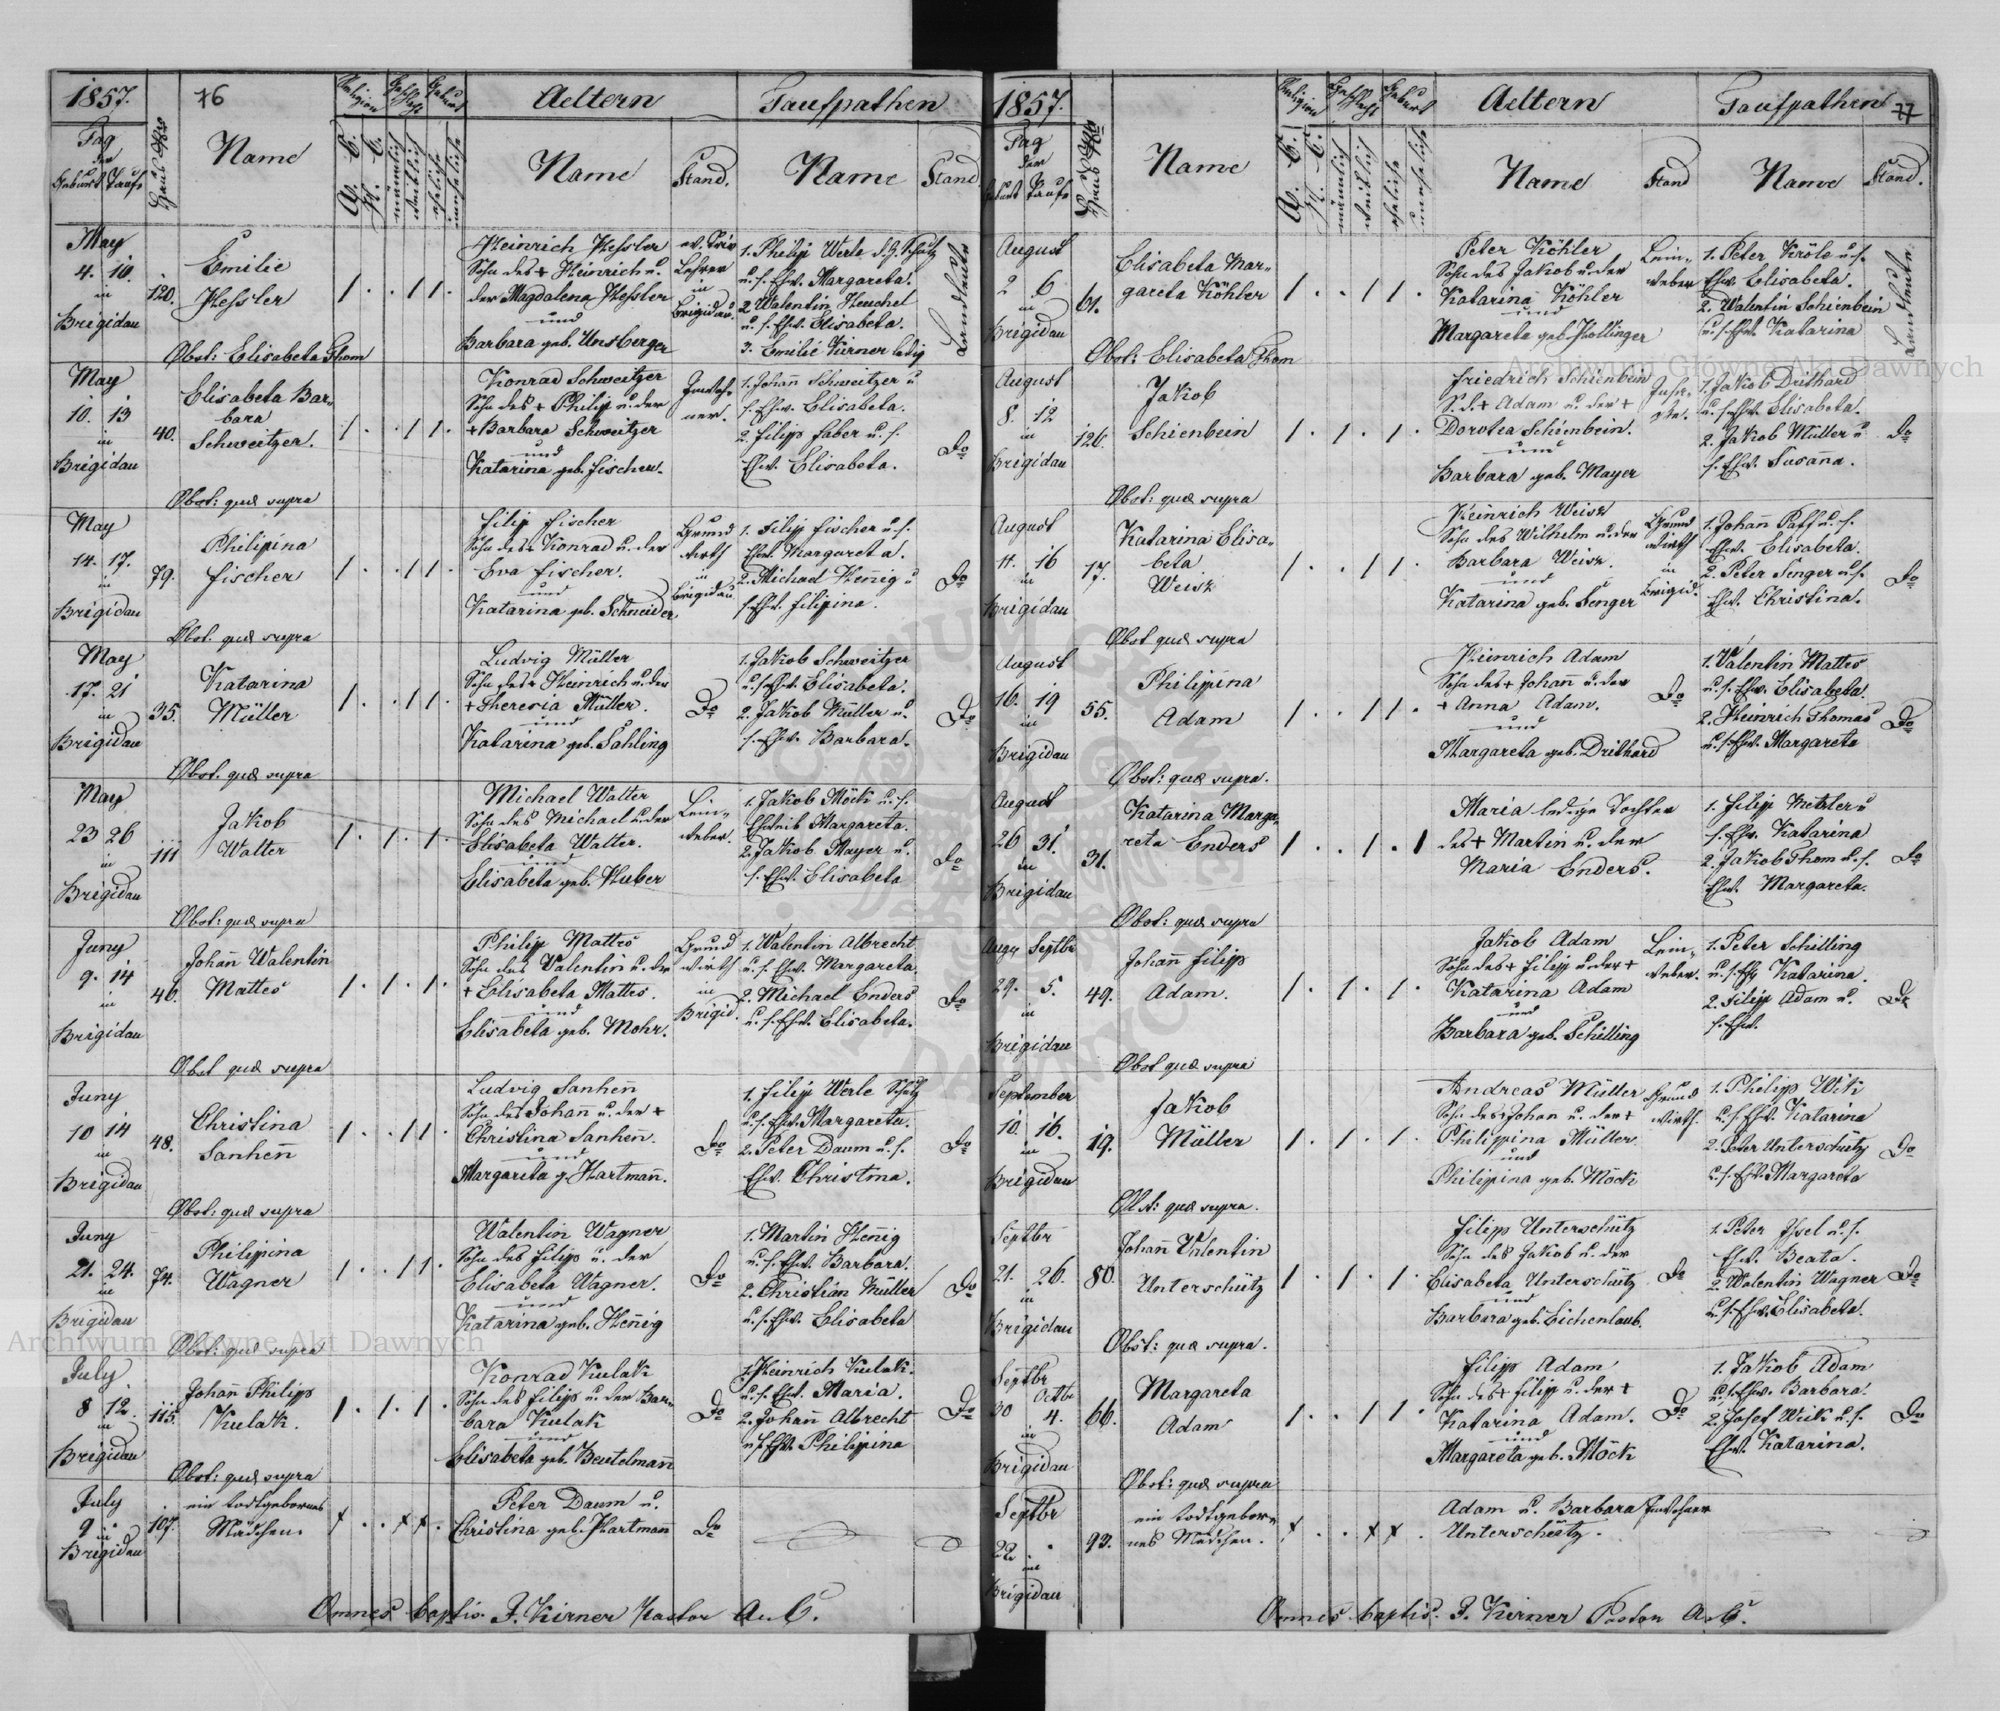 1857.
76
Religion
Geschlecht
Geburt
Aeltern
Taufpathen
Tag
der
Geburt Taufe
Haus Nro
Name
A. C.
H. C.
männlich
weiblich
eheliche
uneheliche
Name
Stand.
Name
Stand
May
4. 10.
in
Brigidau
120.
Emilie
Hessler
1 . . 1 1 .
Heinrich Hessler
Sohn des + Heinrich u.
der Magdalena Hessler
und
Barbara geb. Unsberger
ev. Priv
Lehrer
in
Brigidau.
1. Philip Werle d. G. Schütz
u. s. Ehw. Margareta.
2 Walentin Heuchel
u. s. Ehw. Elisabeta.
3. Emilie Kirner ledig
Landleute
Obst: Elisabeta Thom
May
10. 13
in
Brigidau
40.
Elisabeta Bar-
bara
Schweitzer.
1 . . 1 1 .
Konrad Schweitzer
Sohn des + Philip u. der
+ Barbara Schweitzer
und
Katarina geb. Fischer.
Inwoh-
ner.
1. Johan̄ Schweitzer u
s. Ehw. Elisabeta.
2. Filipp Faber u. s.
Ehw. Elisabeta.
Do
Obst: quæ supra
May
14. 17.
in
Brigidau
79.
Philipina
Fischer
1 . . 1 1 .
Filip Fischer
Sohn des + Konrad u. der
Eva Fischer.
und
Katarina geb. Schneider
Grund
wirth
in
Brigidau.
1. Filip Fischer u. s.
Ehw. Margareta.
2. Michael Hen̄ig u
s. Ehw. Filipina.
Do
Obst. quæ supra
May
17. 21
in
Brigidau
35.
Katarina
Müller
1 . . 1 1 .
Ludvig Müller
Sohn des + Heinrich u. der
+ Theresia Müller.
und
Katarina geb. Sahling
Do
1. Jakob Schweitzer
u. s. Ehw. Elisabeta.
2. Jakob Müller u.
s. Ehw. Barbara.
Do
Obst. quæ supra
May
23 26
in
Brigidau
111
Jakob
Walter
1 . 1 . 1 .
Michael Walter
Sohn des Michael u der
Elisabeta Walter.
und
Elisabeta geb. Huber
Lein-
weber.
1. Jakob Möck u. s.
Eheweib Margareta.
2. Jakob Mayer u.
s. Ehw. Elisabeta
Do
Obst: quæ supra
Juny
9. 14
in
Brigidau
46.
Johan̄ Walentin
Mattes
1 . 1 . 1 .
Philip Mattes
Sohn des Valentin u. der
+ Elisabeta Mattes.
und
Elisabeta geb. Mohr.
Grund
wirth
in
Brigid.
1. Walentin Albrecht
u. s. Ehw. Margareta.
2. Michael Enders
u. s. Ehw. Elisabeta.
Do
Obst quæ supra
Juny
10 14
in
Brigidau
48.
Christina
Sanhen̄
1 . . 1 1 .
Ludvig Sanhen̄
Sohn des Johan u. der +
Christina Sanhen̄.
und
Margareta g. Hartman̄.
Do
1. Filip Werle Schütz
u. s. Ehw. Margareta.
2. Peter Daum u. s.
Ehw. Christina.
Do
Obst: quæ supra
Juny
21. 24.
in
Brigidau
74.
Philipina
Wagner
1 . . 1 1 .
Walentin Wagner
Sohn des Filipp u. der
Elisabeta Wagner.
und
Katarina geb. Hen̄ig
Do
1. Martin Hen̄ig
u. s. Ehw. Barbara.
2. Christian Müller
u. s. Ehw. Elisabeta
Do
Obst: quæ supra
July
8 12.
in
Brigidau
115.
Johan̄ Philipp
Kulak.
1 . 1 . 1 .
Konrad Kulak
Sohn des Filipp u. der Bar-
bara Kulak
und
Elisabeta geb. Beutelman̄
Do
1. Heinrich Kulak.
u. s. Ehw. Maria.
2. Johan̄ Albrecht
u. s. Ehw. Philipina
Do
Obst: quæ supra
July
9
in
Brigidau
107.
ein todtgebornes
Mädchen.
x . . x x .
Peter Daum u.
Christina geb. Hartman̄
Do
Omnes baptis. J. Kirner Pastor A. C.
1857.
Religion
Geschlecht
Geburt
Aeltern
Taufpathen
77
Tag
der
Geburt Taufe
Haus Nro
Name
A. C.
H. C.
männlich
weiblich
eheliche
uneheliche
Name
Stand
Name
Stand.
August
2 6
in
Brigidau
61.
Elisabeta Mar-
gareta Köhler
1 . . 1 1 .
Peter Köhler
Sohn des Jakob u. der
Katarina Köhler
und
Margareta geb. Hollinger
Lein-
weber
1. Peter Kröle u. s.
Ehw. Elisabeta.
2. Walentin Schienbein
u. s. Ehw. Katarina
Landleute
Obst: Elisabeta Thom
August
8. 12
in
Brigidau
126.
Jakob
Schienbein
1 . 1 . 1 .
Friedrich Schienbein
S. d. + Adam u. der +
Dorotea Schienbein.
und
Barbara geb. Mayer
1. Jakob Drithard
u. s. Ehw. Elisabeta.
2. Jakob Müller u
s. Ehw. Susan̄a.
Do
Obst: quæ supra
August
11. 16
in
Brigidau
17.
Katarina Elisa-
beta
Weisz
1 . . 1 1 .
Heinrich Weisz
Sohn des Wilhelm u. der
Barbara Weisz.
und
Katarina geb. Senger
Grund
wirth
in
Brigid.
1. Johan̄ Paff u. s.
Ehw. Elisabeta.
2. Peter Senger u. s.
Ehw. Christina.
Do
Obst quæ supra
August
16. 19
in
Brigidau
55.
Philippina
Adam
1 . . 1 1 .
Heinrich Adam
Sohn des + Johan̄ u. der
+ Anna Adam.
und
Margareta geb. Drithard
Do
1. Valentin Mattes
u. s. Ehw. Elisabeta.
2. Heinrich Thomas
u. s. Ehw. Margareta
Do
Obst: quæ supra.
August
26 31.
in
Brigidau
31.
Katarina Marga-
reta Enders
1 . . 1 . 1
Maria ledige Tochter
des + Martin u. der
Maria Enders.
1. Filip Metzler u
s. Ehw. Katarina
2. Jakob Thom u. s.
Ehw. Margareta.
Do
Obst: quæ supra
Aug. Septbr
29. 5.
in
Brigidau
49.
Johan̄ Filipp
Adam.
1 . 1 . 1 .
Jakob Adam
Sohn des + Filip u der +
Katarina Adam
und
Barbara geb. Schilling
Lein-
weber.
1. Peter Schilling
u. s. Ehw. Katarina.
2. Filip Adam u.
s. Ehw.
Do
Obst quæ supra
September
10. 16.
in
Brigidau
19.
Jakob
Müller
1 . 1 . 1 .
Andreas Müller
Sohn des + Johan u. der +
Philippina Müller
und
Philippina geb. Möck
Grund
wirth.
1. Philipp Wik
u. s. Ehw. Katarina
2. Peter Unterschütz
u. s. Ehw. Margareta
Do
Obst: quæ supra.
Septbr
21. 26.
in
Brigidau
80.
Johan̄ Valentin
Unterschütz
1 . 1 . 1 .
Filipp Unterschütz
Sohn des Jakob u. der
Elisabeta Unterschütz
und
Barbara geb. Eichenlaub.
Do
1. Peter Issel u. s.
Ehw. Beata.
2. Walentin Wagner
u. s. Ehw. Elisabeta.
Do
Obst: quæ supra.
Septbr
Octbr
30 4.
in
Brigidau
66.
Margareta
Adam
1 . . 1 1 .
Filipp Adam
Sohn des + Filip u. der +
Katarina Adam.
und
Margareta geb. Möck
Do
1. Jakob Adam
u. s. Ehw. Barbara.
2. Josef Weik u. s.
Ehw. Katarina.
Do
Obst: quæ supra
Septbr
22.
in
Brigidau
93.
ein todtgebor-
nes Mädchen.
x . . x x .
Adam u. Barbara
Unterschütz.
Inwohner
Omnes baptis. J. Kirner Pastor A. C.
Archiwum Główne Akt Dawnych
Archiwum Główne Akt Dawnych